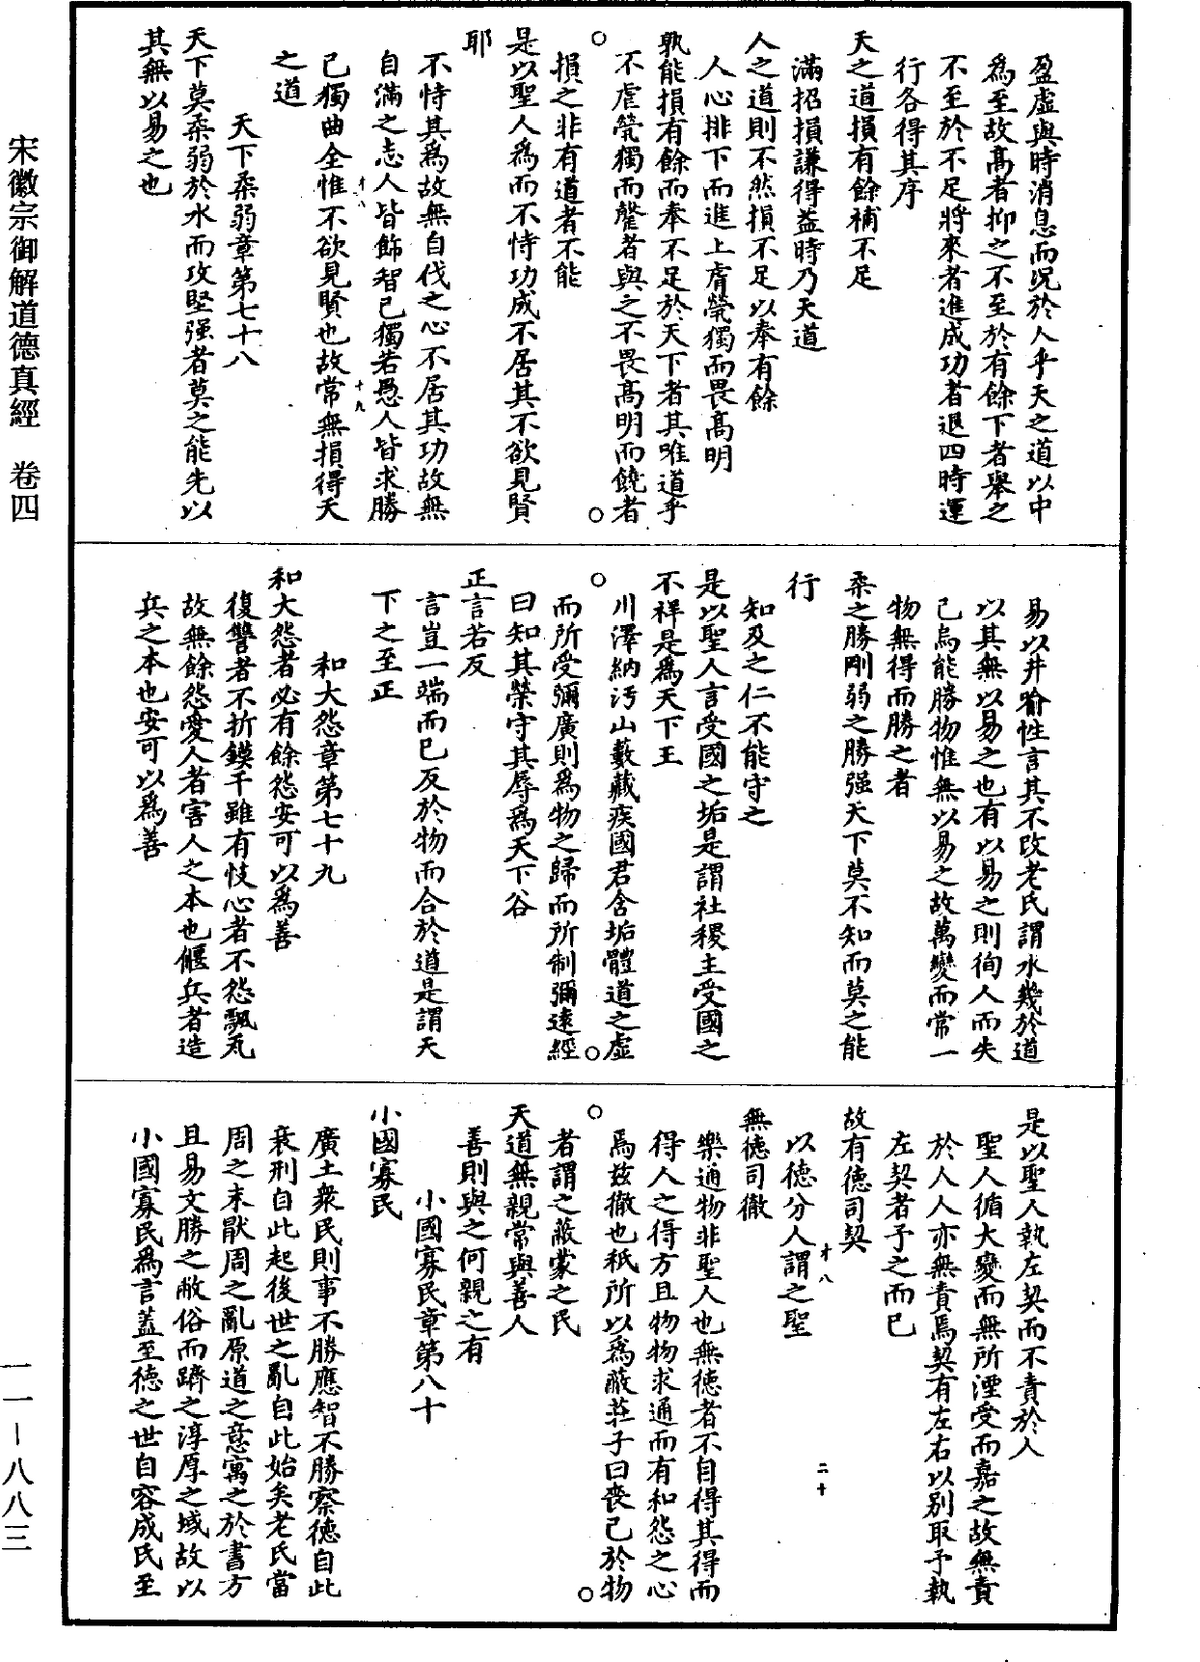 盈虛與時消息而況於人乎天之道以中
為至故高者抑之不至於有餘下者舉之
不至於不足將來者進成功者退四時運
行各得其序
天之道損有餘補不足
滿招損謙得益時乃天道
人之道則不然損不足以奉有餘
人心排下而進上虐煢獨而畏高明
孰能損有餘而奉不足於天下者其唯道乎
不虐煢獨而罄者與之不畏高明而饒者
損之非有道者不能
是以聖人為而不恃功成不居其不欲見賢
耶
不恃其為故無自伐之心不居其功故無
自滿之志人皆飾智己獨若愚人皆求勝
己獨曲全惟不欲見賢也故常無損得天
之道
天下柔弱章第七十八
天下莫柔弱於水而攻堅强者莫之能先以
其無以易之也
易以井喻性言其不改老氏謂水幾於道
以其無以易之也有以易之則徇人而失
己烏能勝物惟無以易之故萬變而常一
物無得而勝之者
柔之勝剛弱之勝强天下莫不知而莫之能
行
知及之仁不能守之
是以聖人言受國之垢是謂社稷主受國之
不祥是為天下王
川澤納汙山藪藏疾國君含垢體道之虛
而所受彌廣則為物之歸而所制彌遠經
曰知其榮守其辱為天下谷
正言若反
言豈一端而已反於物而合於道是謂天
下之至正
和大怨章第七十九
和大怨者必有餘怨安可以為善
復讐者不折鏌干雖有忮心者不怨飄瓦
故無餘怨愛人者害人之本也偃兵者造
兵之本也安可以為善
是以聖人執左契而不責於人
聖人循大變而無所湮受而嘉之故無責
於人人亦無責焉契有左右以别取予執
左契者予之而已
故有德司契
以德分人謂之聖
無德司徹
樂通物非聖人也無德者不自得其得而
得人之得方且物物求通而有和怨之心
焉茲徹也秖所以為蔽莊子曰喪己於物
者謂之蔽蒙之民
天道無親常與善人
善則與之何親之有
小國寡民章第八十
小國寡民
廣土衆民則事不勝應智不勝察德自此
衰刑自此起後世之亂自此始矣老氏當
周之末厭周之亂原道之意寓之於書方
且易文勝之敝俗而躋之淳厚之域故以
小國寡民為言蓋至德之世自容成氏至
十八
十九
十八
二十
宋徽宗御解道德真經　卷四
一一-八八三